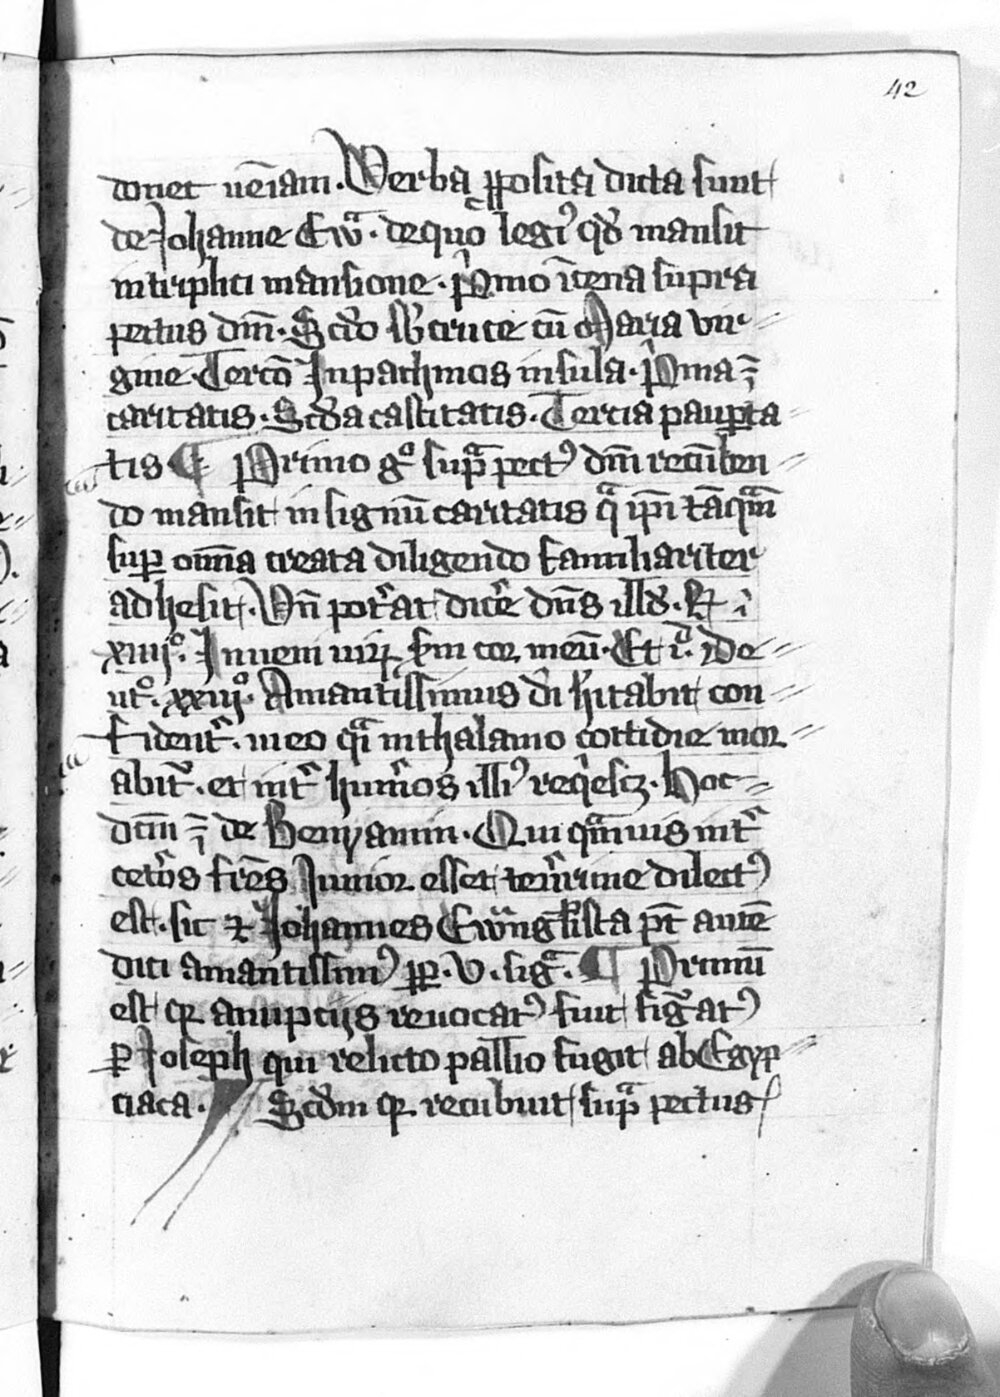 42
donet ueniā. Verba p̄posita dicta sunt
de Johanne Ew̄. de quo legiꝰ qđ mansit
in triplici mansione. P̓mo ī cena supra
pectus dn̄i. Scd̄o sb̄ cruce cū Maria vir
gine. Tercō In pathmos insula. P̓ma ē
caritatis. Scd̄a castitatis. Tercia paup̱ta
tis ¶ Primo gͦ supᷓ pectꝰ dn̄i recūben
do mansit in signū caritatis qᷓ ip̄i tāqᷓm
suꝑ om̄ia creata diligendo familiariter
adhesit. Vn̄ pot̓at dic̓e dn̄s illđ. R̄ i
xiiijͦ. Inueni uiꝝ sm̄ cor meū. Et i. De
utͦ. xxiijͦ. Amantissimus dn̄i hītabit con
fident̓. in eo qᷓ in thalamo cottidie mor
abit᷑. et int̓ hum̓os illiꝰ reqͥescꝫ. Hoc
dictū ē de Benyamin. Qui qᷓmuis int̓
cet̓os fr̄es Junior esset ten̓rime dilectꝰ
est. sic ⁊ Johannes Ewᷓngelista pt̄ autē
dici amantissimꝰ ꝓp̱. V. sigᷓ. ¶ Primū
est qꝛ a nupcijs reuocatꝰ fuit figᷓatꝰ
ꝑ Joseph qui relicto pallio fugit ab Egyp
ciaca. Scd̄m qꝛ recubuit supᷓ pectus